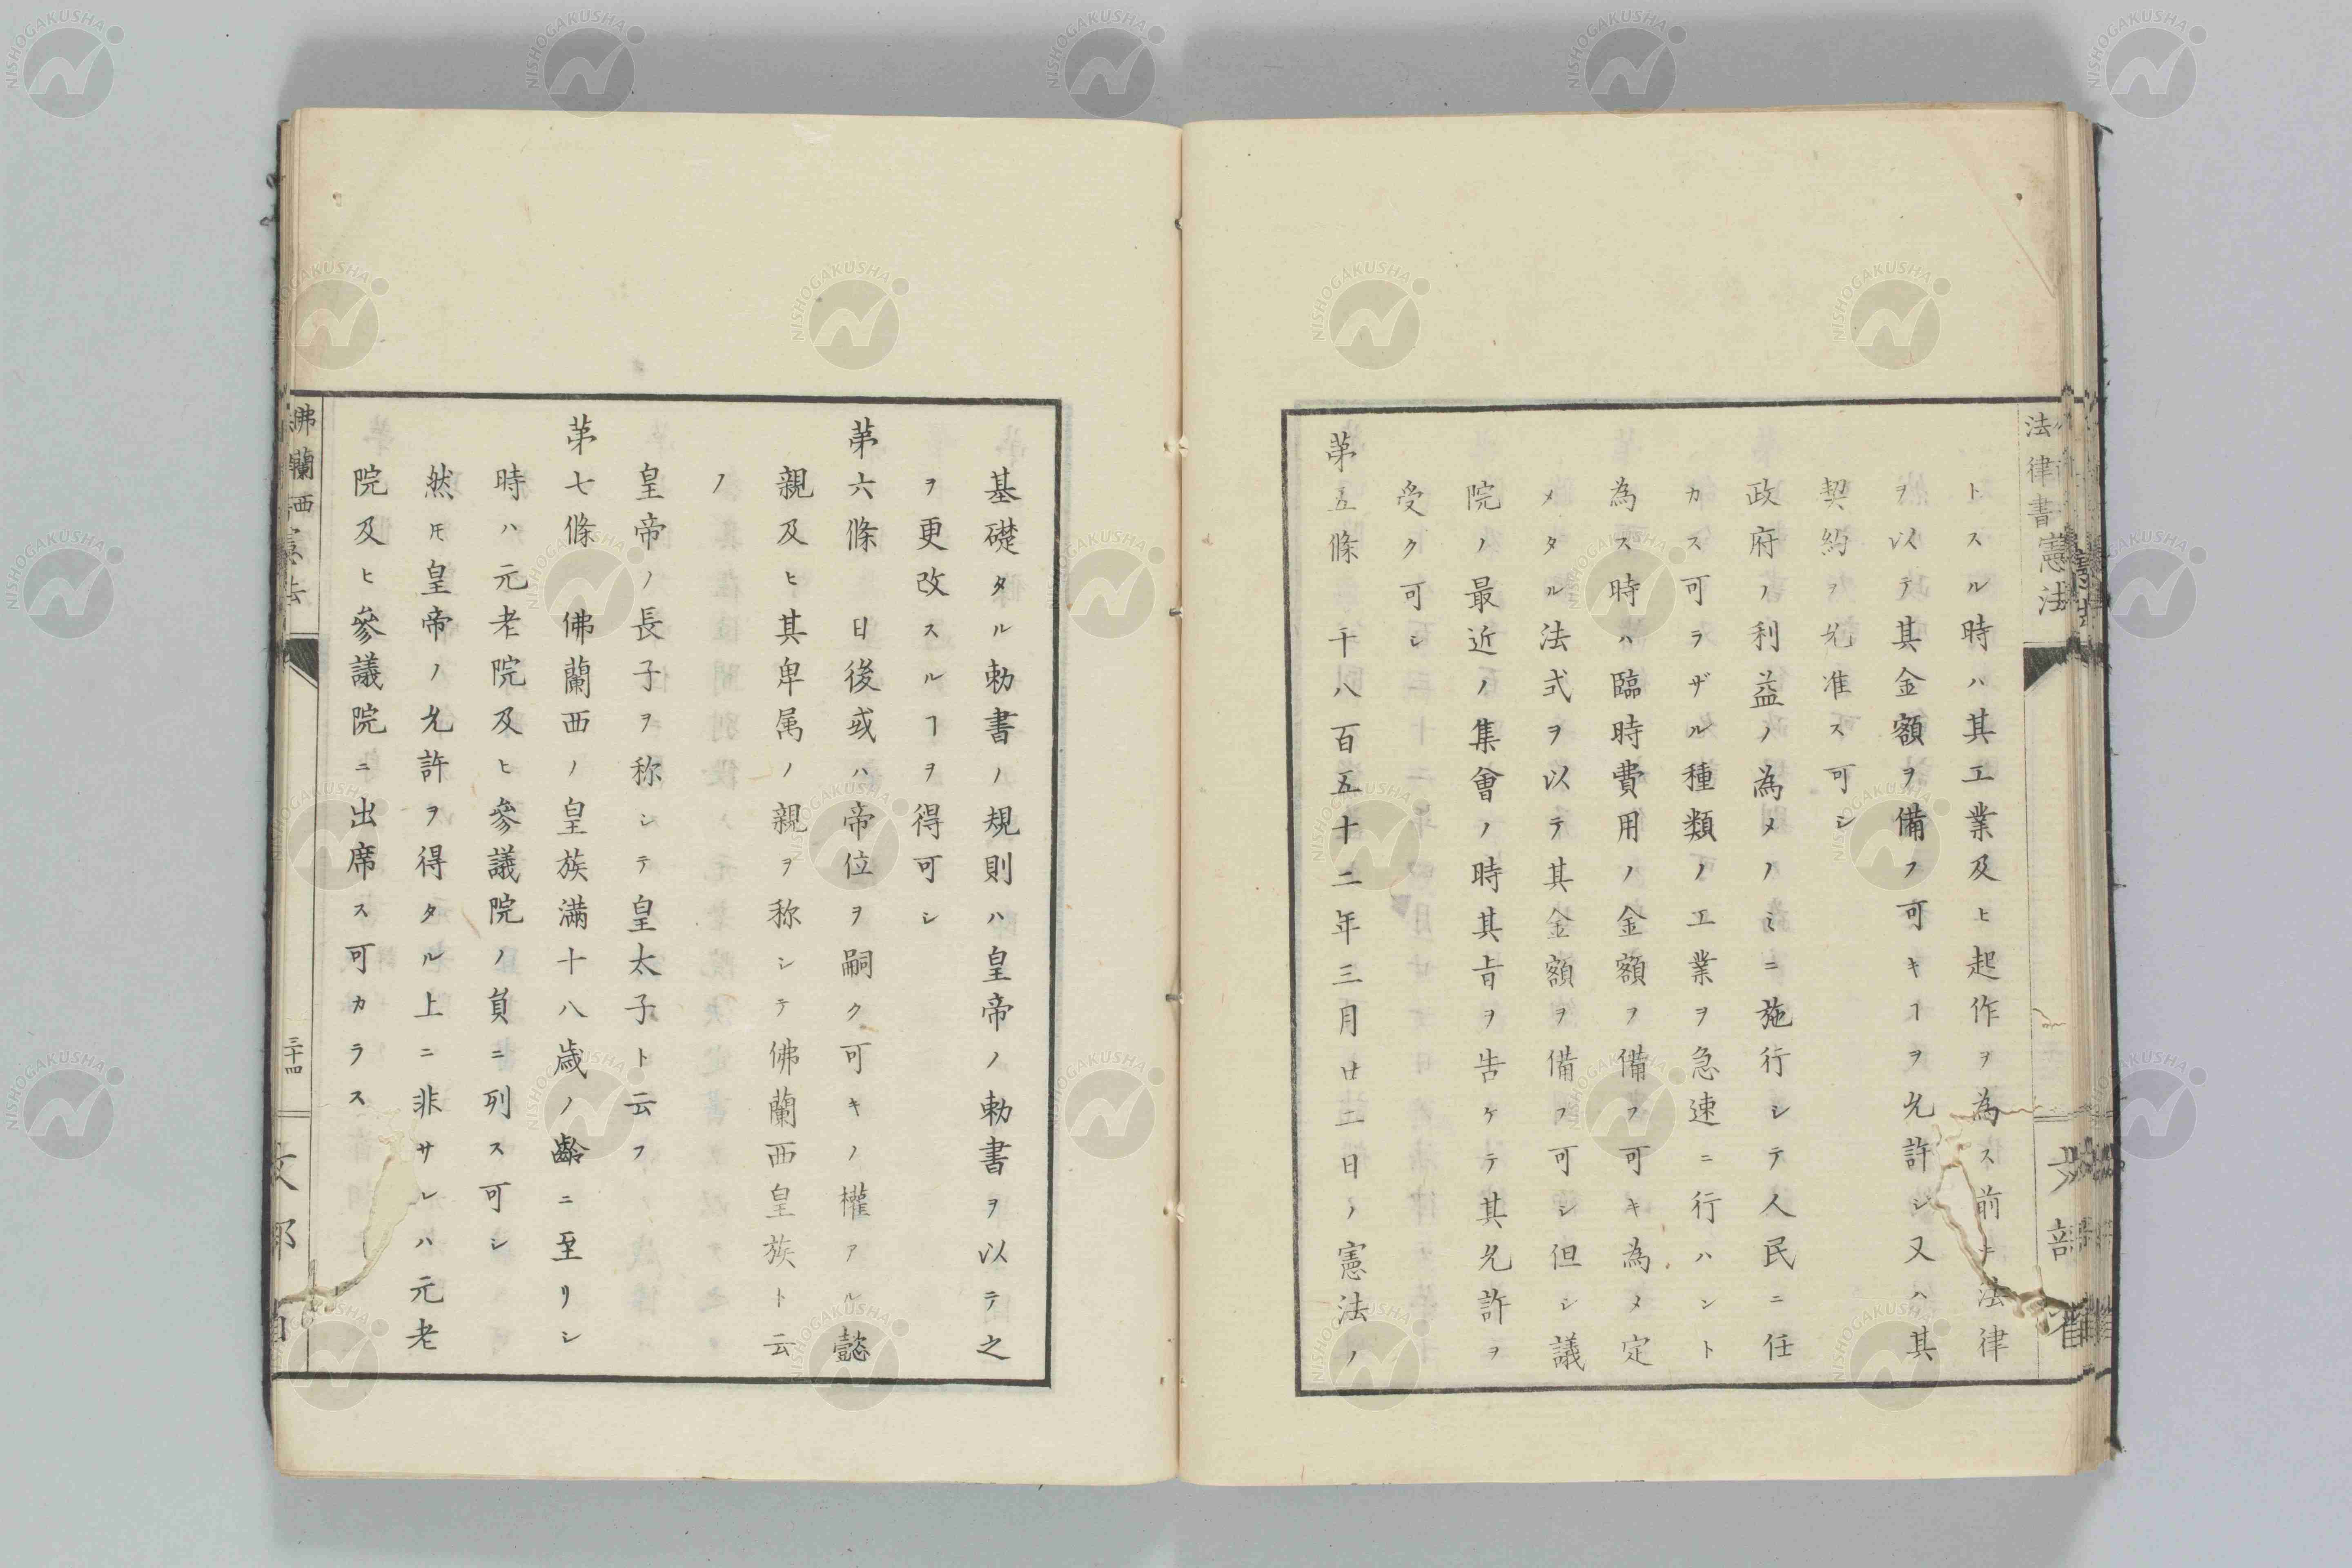 法律書 憲法
トスル時ハ其工業及ヒ起作ヲ為ス前ニ法律
ヲ以テ其金額ヲ備フ可キヿヲ允許シ又ハ其
契約ヲ允准ス可シ
政府ノ利益ノ為メノミニ施行シテ人民ニ任
カス可ラザル種類ノ工業ヲ急速ニ行ハント
為ス時ハ臨時費用ノ金額ヲ備フ可キ為メ定
メタル法式ヲ以テ其金額ヲ備フ可シ但シ議
院ノ最近ノ集會ノ時其旨ヲ告ケテ其允許ヲ
受ク可シ
苐五條 千八百五十二年三月廿二日ノ憲法ノ
基礎タル勅書ノ規則ハ皇帝ノ勅書ヲ以テ之
ヲ更改スルヿヲ得可シ
苐六條 日後或ハ帝位ヲ嗣ク可キノ權アル懿
親及ヒ其卑属ノ親ヲ称シテ佛蘭西皇族ト云
フ
皇帝ノ長子ヲ称シテ皇太子ト云フ
苐七條 佛蘭西ノ皇族満十八歳ノ齡ニ至リシ
時ハ元老院及ヒ參議院ノ負ニ列ス可シ
然𪜈皇帝ノ允許ヲ得タル上ニ非サレハ元老
院及ヒ參議院ニ出席ス可カラス
佛蘭西憲法
三十四
文部省
NISHOGAKUSHA